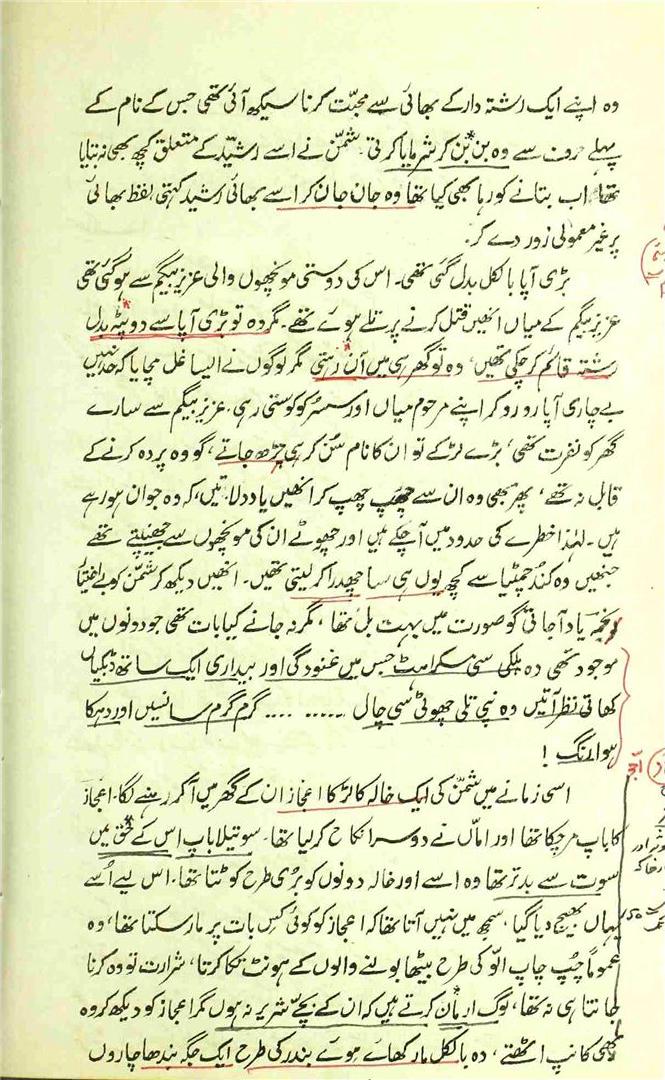 وہ اپنے ایک رشتہ دار کے بھائی سے محبّت کرنا سیکھ آئی تھی جس کے نام کے
پہلے حرف سے وہ بن بن کر شرمایا کرتی۔ شمّن نے اسے رشید کے متعلق کچھ بھی نہ بتایا
تھا۔ اب بتانے کو رہا بھی کیا تھا وہ جان جان کر اسے بھائی رشید کہتی، لفظ بھائی
پر غیر معمولی زور دے کر۔
بڑی آپا بالکل بدل گئی تھی۔ اس کی دوستی مونچھوں والی عزیز بیگم سے ہو گئی تھی
عزیز بیگم کے میاں انھیں قتل کرنے پر تلے ہوئے تھے۔ مگر وہ تو بڑی آپا سے دوپٹہ بدل
رشتہ قائم کر چکی تھیں، وہ تو گھر ہی میں آن رہتی مگر لوگوں نے ایسا غل مچایا کہ حد نہیں
بے چاری آپا رو رو کر اپنے مرحوم میاں اور سسر کو کوستی رہی۔ عزیز بیگم سے سارے
گھر کو نفرت تھی، بڑے لڑکے تو ان کا نام سُن کر ہی چڑھ جاتے، گو وہ پردہ کرنے کے
قابل نہ تھے، پھر بھی وہ ان سے چھپ چھپ کر انھیں یاد دلاتیں، کہ وہ جوان ہو رہے
ہیں۔ لہٰذا خطرے کی حدود میں آ چکے ہیں اور چھوٹے ان کی مونچھوں سے جھینپتے تھے
جنھیں وہ کند چمٹیا سے کچھ یوں ہی سا چھدرا کر لیتی تھیں۔ انھیں دیکھ کر شمّن کو بے اختیار
نجمہ یاد آ جاتی گو صورت میں بہت بل تھا، مگر نہ جانے کیا بات تھی جو دونوں میں
موجود تھی وہ ہلکی سی مسکراہٹ جس میں غنودگی اور بیداری ایک ساتھ ڈبکیاں
کھاتی نظر آتیں وہ نپی تلی چھوٹی سی چال ........ گرم گرم سانسیں اور دہکا
ہوا رنگ!
اسی زمانے میں شمّن کی ایک خالہ کا لڑکا اعجاز ان کے گھر میں آ کر رہنے لگا۔ اعجاز
کا باپ مر چکا تھا اور اماّں نے دوسرا نکاح کر لیا تھا۔ سوتیلا باپ اس کے حق میں
سوت سے بدتر تھا وہ اسے اور خالہ دونوں کو بُری طرح کوٹتا تھا۔ اس لیے اُسے
یہاں بھیج دیا گیا، سمجھ میں نہیں آتا تھا کہ اعجاز کو کوئی کس بات پر مار سکتا تھا، وہ
عموماً چُپ چاپ الّو کی طرح بیٹھا بولنے والوں کے ہونٹ تکا کرتا، شرارت تو وہ کرنا
جانتا ہی نہ تھا، لوگ ارمان کرتے ہیں کہ ان کے بچّے شریر نہ ہوں مگر اعجاز کو دیکھ کر وہ
بھی کانپ اٹھتے، وہ بالکل مار کھائے ہوئے بندر کی طرح ایک جگہ بندھا چاروں